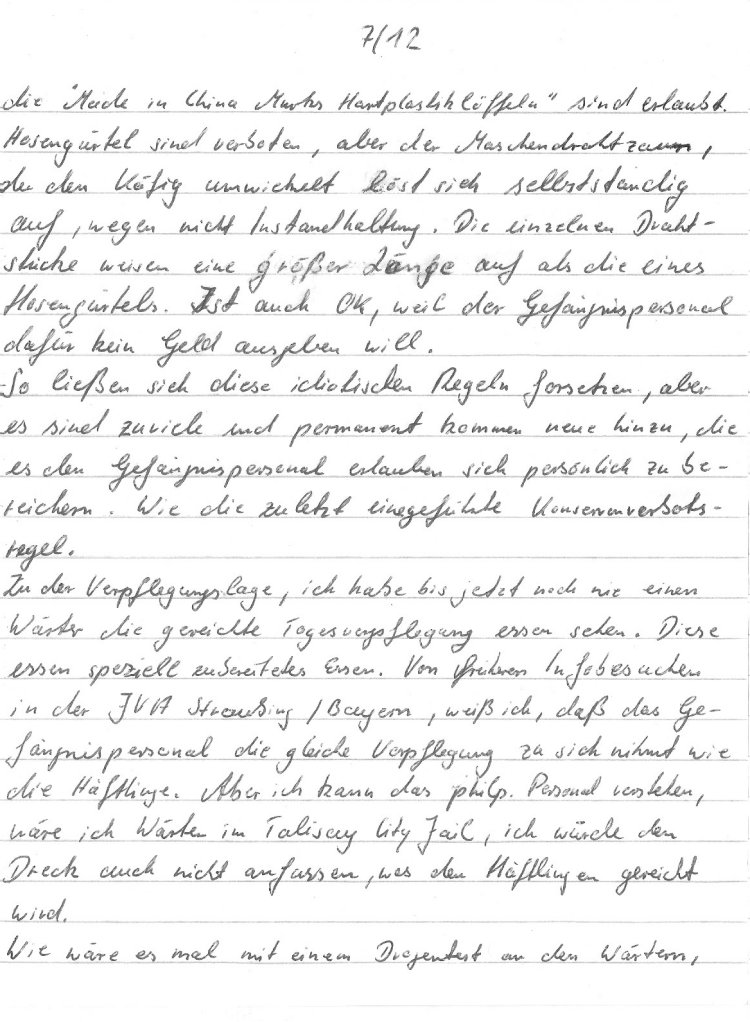 7/12
die "Made in China Murks Hartplastiklöffeln" sind erlaubt.
Hosengürtel sind verboten, aber der Maschendrahtzaun,
der den Käfig umwickelt löst sich selbstständig
auf, wegen nicht Instandhaltung. Die einzelnen Draht-
stücke weisen eine größer Länge auf als die eines
Hosengürtels. Ist auch OK, weil der Gefängnispersonal
dafür kein Geld ausgeben will.
So ließen sich diese idiotischen Regeln forsetzen, aber
es sind zuviele und permanent kommen neue hinzu, die
es den Gefängnispersonal erlauben sich persönlich zu be-
reichern. Wie die zuletzt eingeführte Konservenverbots-
regel.
Zu der Verpflegungslage, ich habe bis jetzt noch nie einen
Wärter die gereichte Tagesverpflegung essen sehen. Diese
essen speziell zubereitetes Essen. Von früheren Infobesuchen
in der JVA Straubing / Bayern, weiß ich, daß das Ge-
fängnispersonal die gleiche Verpflegung zu sich nihmt wie
die Häftlinge. Aber ich kann das philp. Personal verstehen,
wäre ich Wärter im Talisay City Jail, ich würde den
Dreck auch nicht anfassen, was den Häftlingen gereicht
wird.
Wie wäre es mal mit einem Drogentest an den Wärtern,